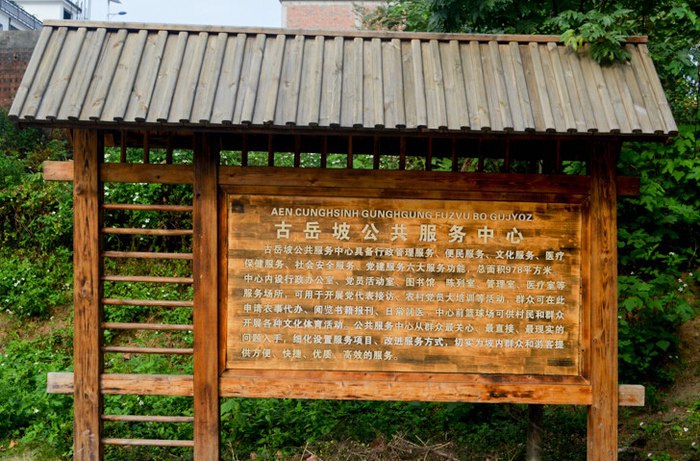 AEN CUNGHSINH GUNGHGUNG FUZVU BO GUJYOZ
古岳坡公共服务中心
古岳坡公共服务中心具备行政管理服务、便民服务、文化服务、医疗
保健服务、社会安全服务、党建服务六大服务功能，总面积978平方米，
中心内设行政办公室、党员活动室、图书馆、陈列室、管理室、医疗室等
服务场所，可用于开展党代表接访、农村党员大培训等活动，群众可在此
申请农事代办、阅览书籍报刊、日常就医，中心前篮球场可供村民和群众
开展各种文化体育活动。公共服务中心从群众最关心、最直接、最现实的
问题入手，细化设置服务项目、改进服务方式，切实为坡内群众和游客提
供方便、快捷、优质、高效的服务。